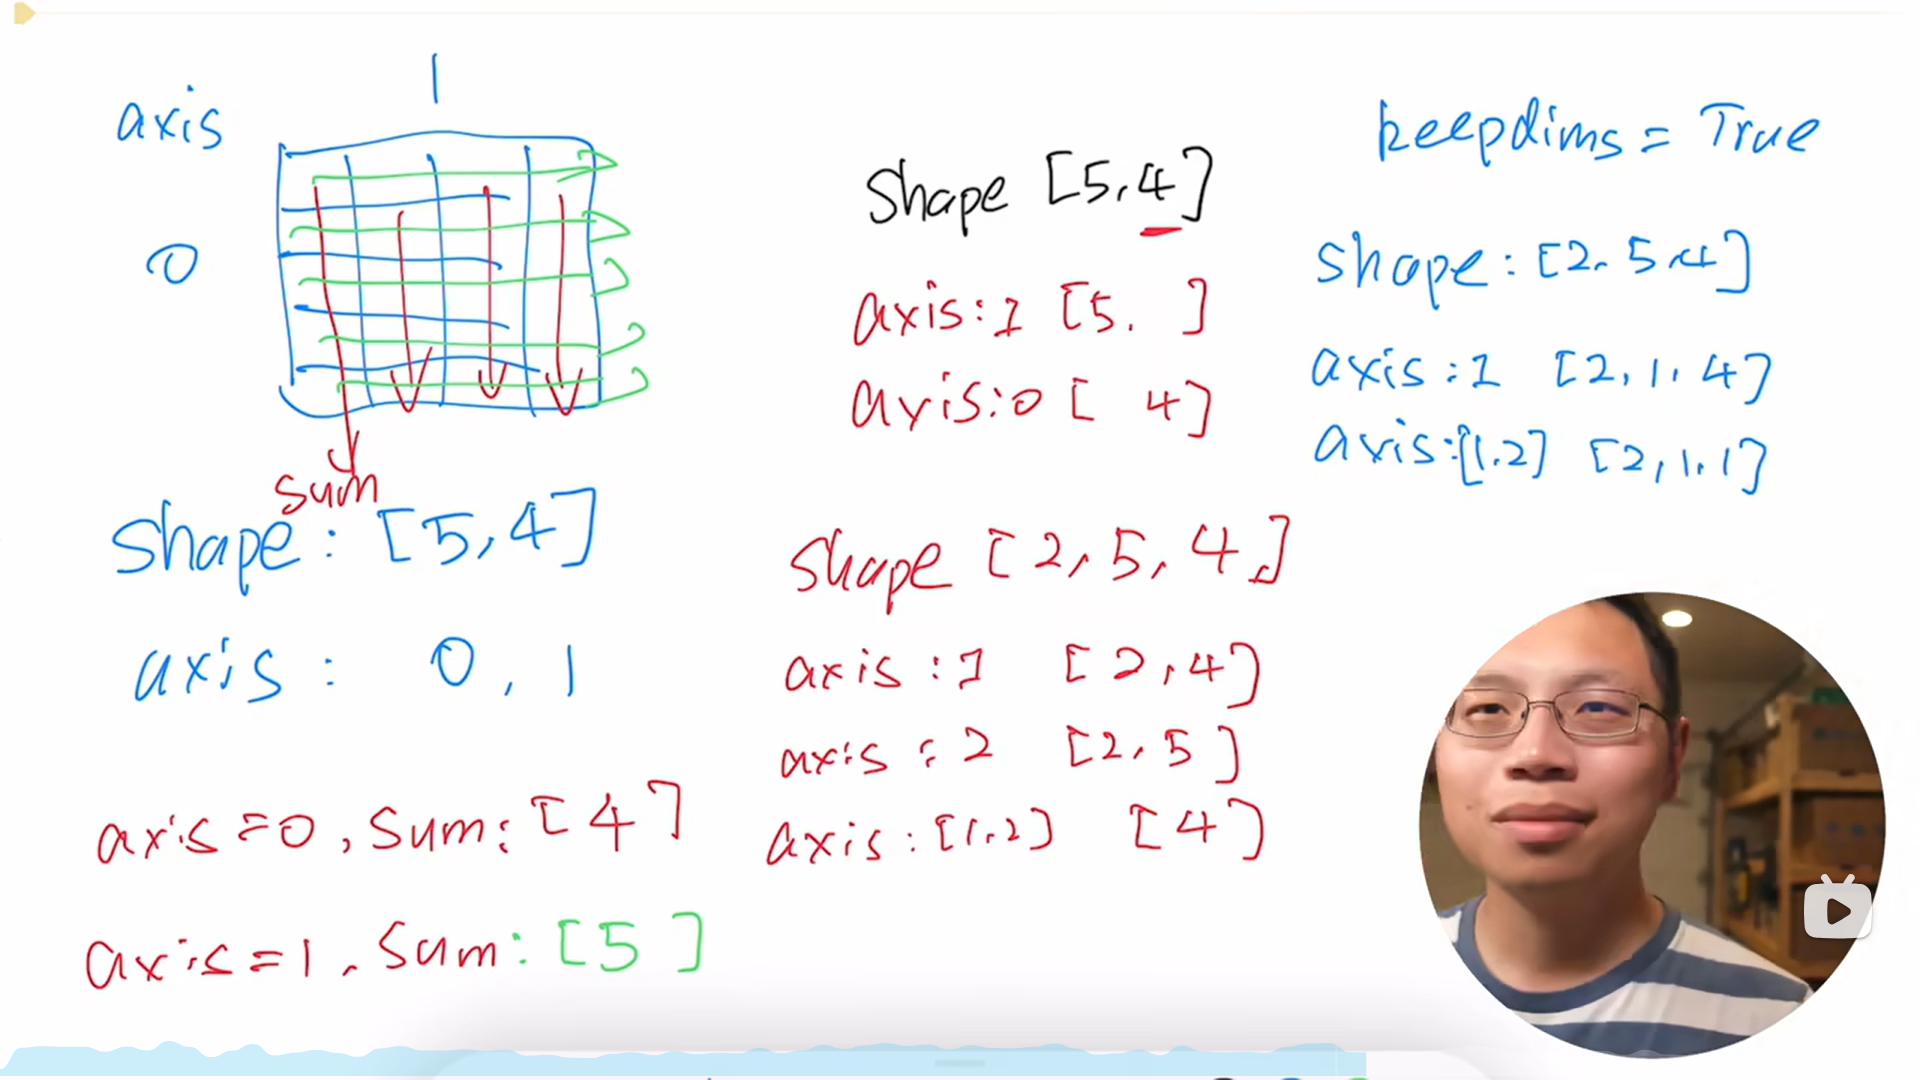 1
axis
0
sum
shape: [5,4]
axis: 0, 1
axis=0, sum: [4]
axis=1, sum: [5 ]
shape [5,4]
axis:1 [5, ]
axis:0 [ 4]
shape [2,5,4,]
axis:1 [2,4]
axis:2 [2,5]
axis:[1,2] [4]
keepdims=True
shape: [2,5,4]
axis:1 [2,1,4]
axis:[1,2] [2,1,1]